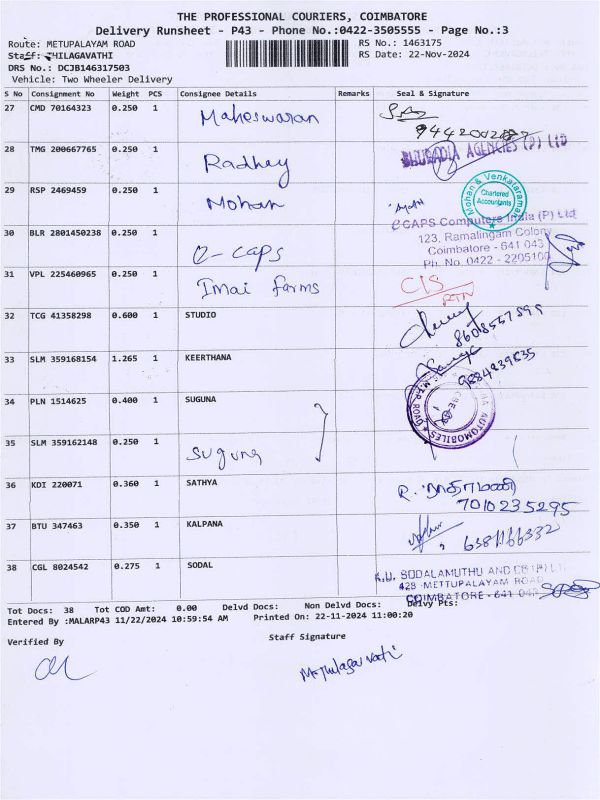 THE PROFESSIONAL COURIERS, COIMBATORE
Delivery Runsheet - P43 - Phone No.:0422-3505555 - Page No.:3
Route: METUPALAYAM ROAD RS No.: 1463175
Staff: THILAGAVATHI RS Date: 22-Nov-2024
DRS No.: DCJB146317503
Vehicle: Two Wheeler Delivery
S No Consignment No Weight PCS Consignee Details Remarks Seal & Signature
27 CMD 70164323 0.250 1 Maheswaran
28 TMG 200667765 0.250 1 Radhey BHURADIA AGENCIES (P) LTD
29 RSP 2469459 0.250 1 Mohan Mohan & Venkataraman Chartered Accountants
30 BLR 2801450238 0.250 1 e-caps eCAPS Computers India (P) Ltd
123, Ramalingam Colony
Coimbatore - 641 043
Ph. No. 0422 - 2205100
31 VPL 225460965 0.250 1 Imai farms CIS
RTN
32 TCG 41358298 0.600 1 STUDIO
33 SLM 359168154 1.265 1 KEERTHANA 9884839835
34 PLN 1514625 0.400 1 SUGUNA AUTOMOBILES
35 SLM 359162148 0.250 1 suguna
36 KDI 220071 0.360 1 SATHYA
7010235295
37 BTU 347463 0.350 1 KALPANA 6381166332
38 CGL 8024542 0.275 1 SODAL K.U. SODALAMUTHU AND CO (P) LTD
428 - METTUPALAYAM ROAD
COIMBATORE - 641 043
Tot Docs: 38 Tot COD Amt: 0.00 Delvd Docs: Non Delvd Docs: Delvy Pts:
Entered By :MALARP43 11/22/2024 10:59:54 AM Printed On: 22-11-2024 11:00:20
Verified By Staff Signature